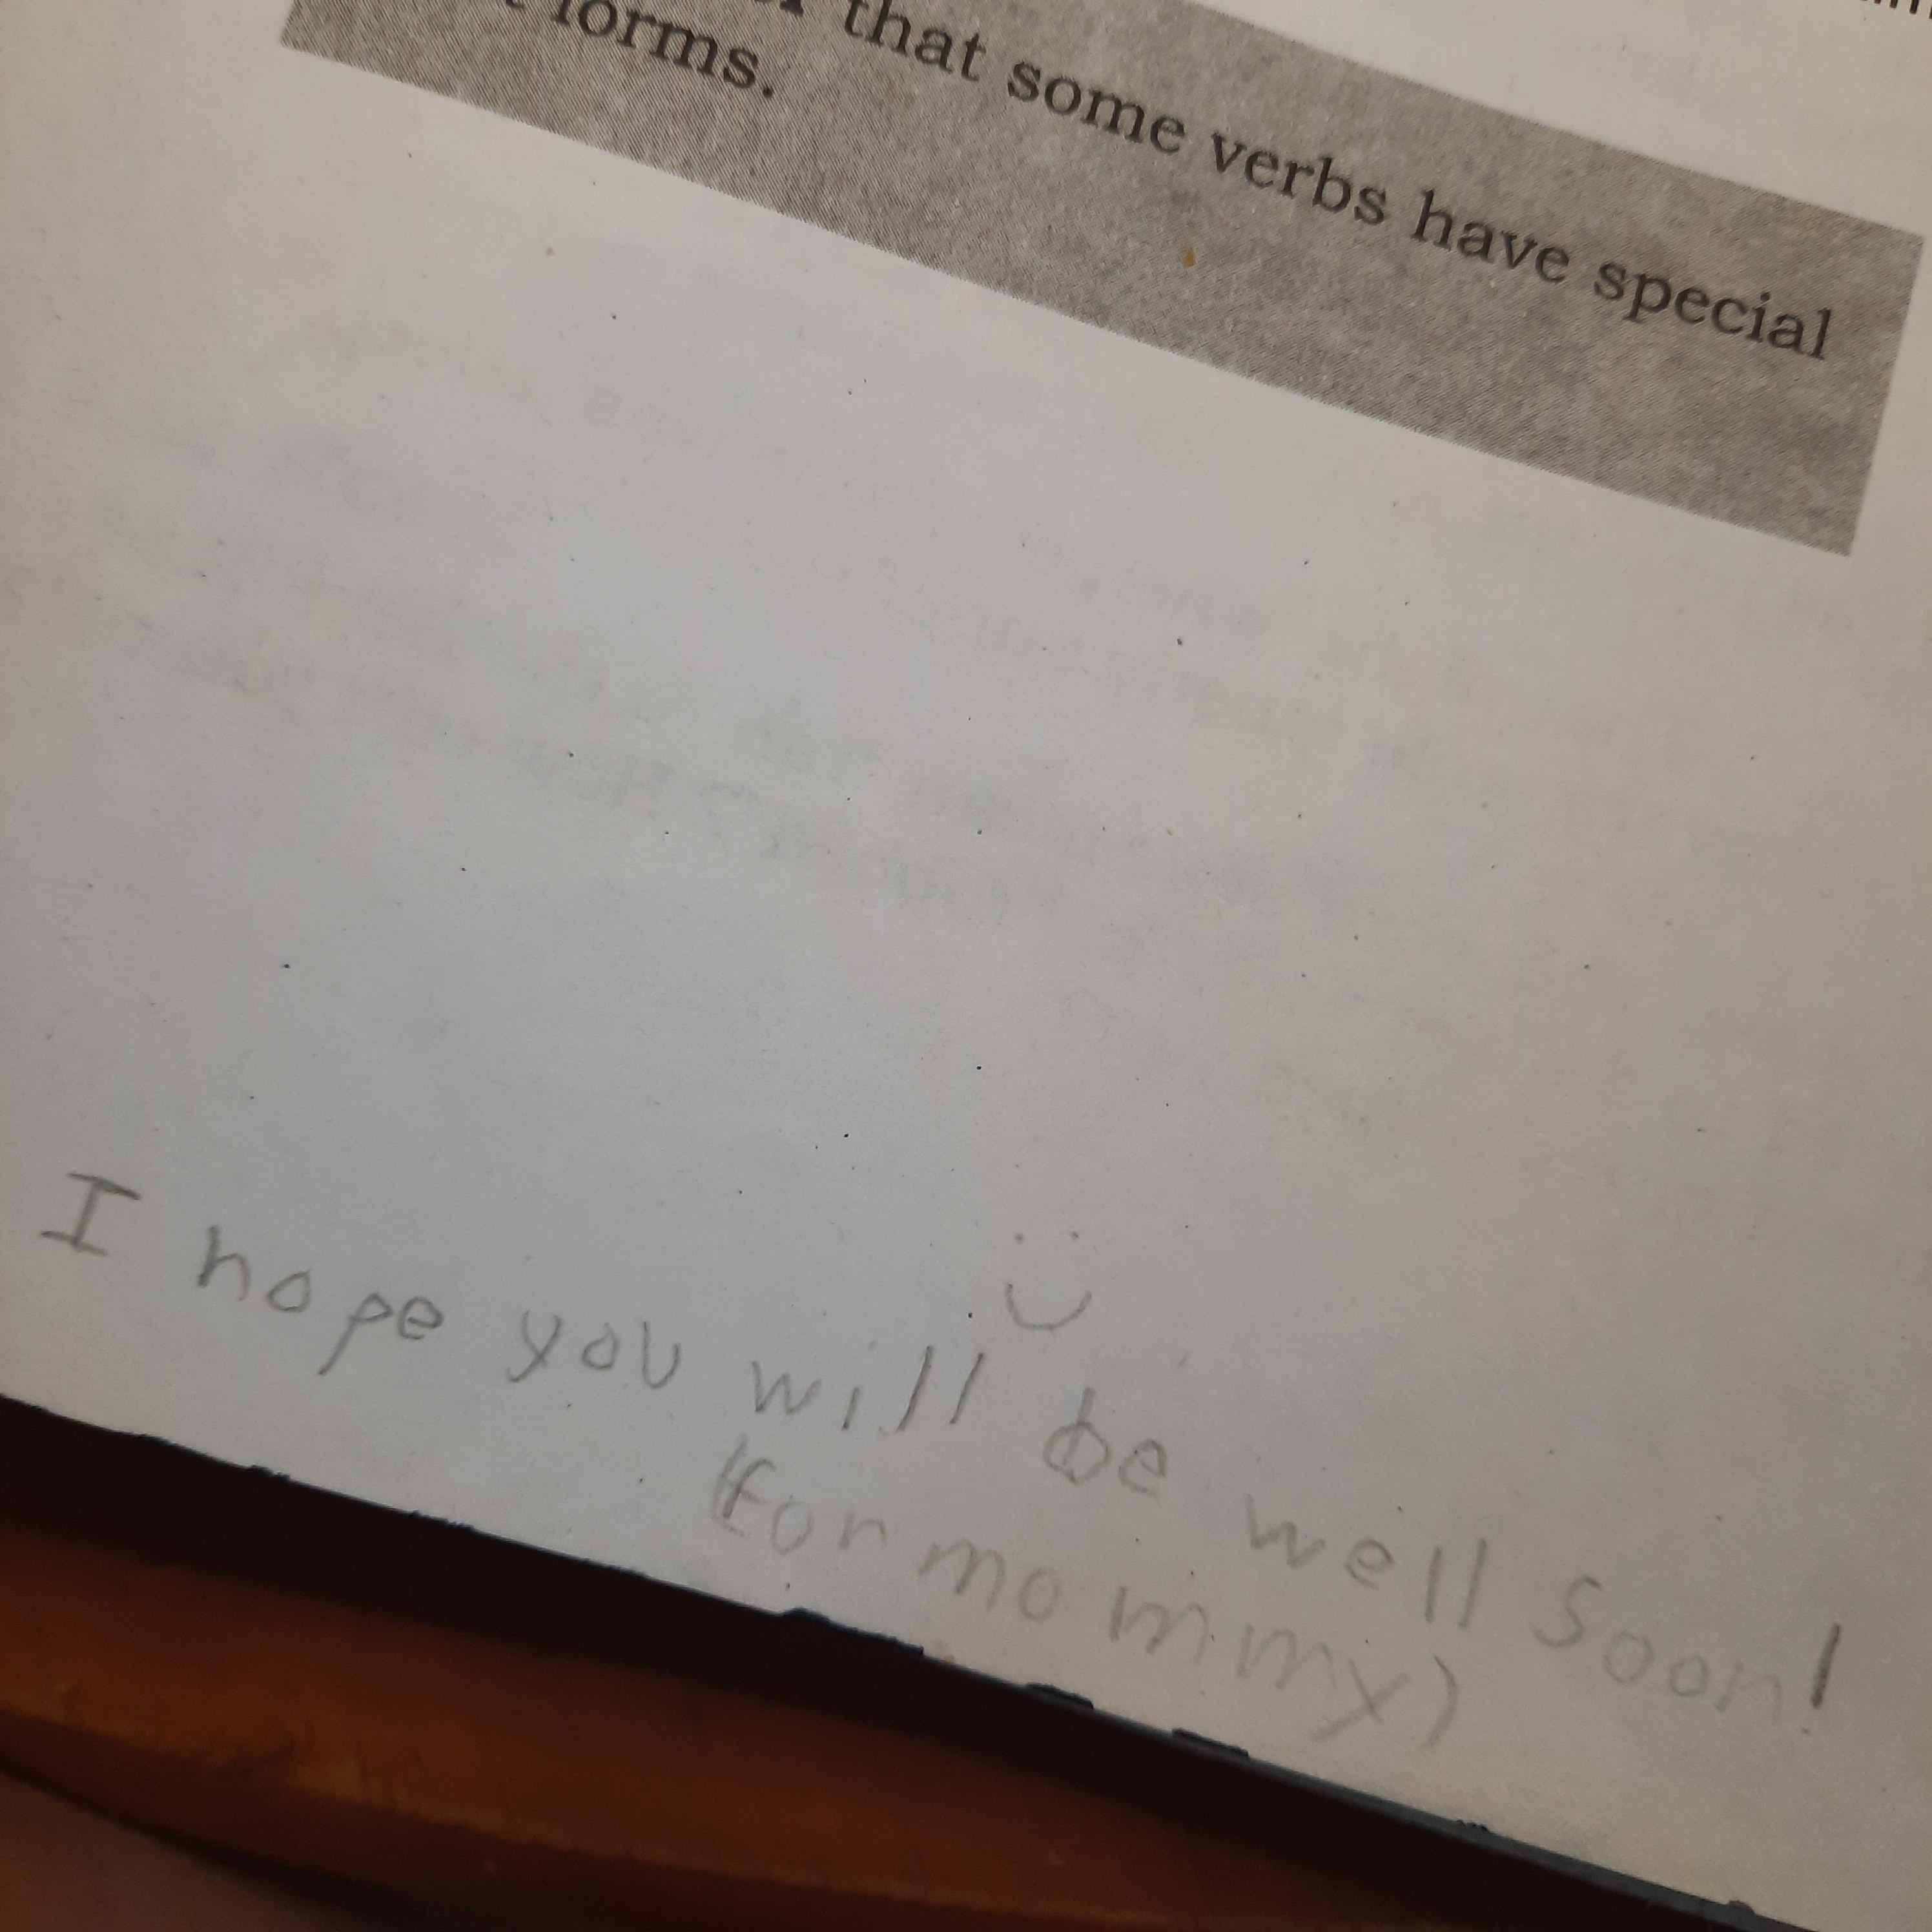 that some verbs have special
forms.
I hope you will be well soon!
(for mommy)